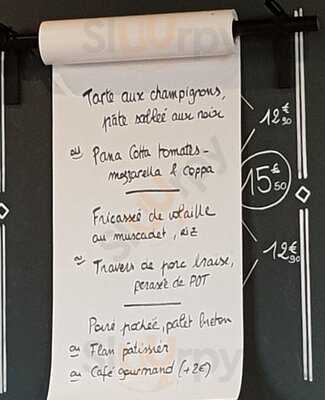 Tarte aux champignons,
pâte sablée aux noix
ou Pana Cotta tomates-
mozzarella & coppa
Fricassé de volaille
au muscadet, riz
ou Travers de porc braisé,
écrasée de PDT
Poire pochée, palet breton
ou Flan pâtissier
ou Café gourmand (+2€)
12€90
15€50
12€90
sluurpy